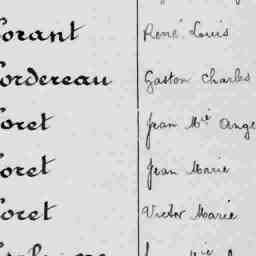 orant René Louis
ordereau Gaston Charles
oret Jean Mie Ange
oret Jean Marie
oret Victor Marie